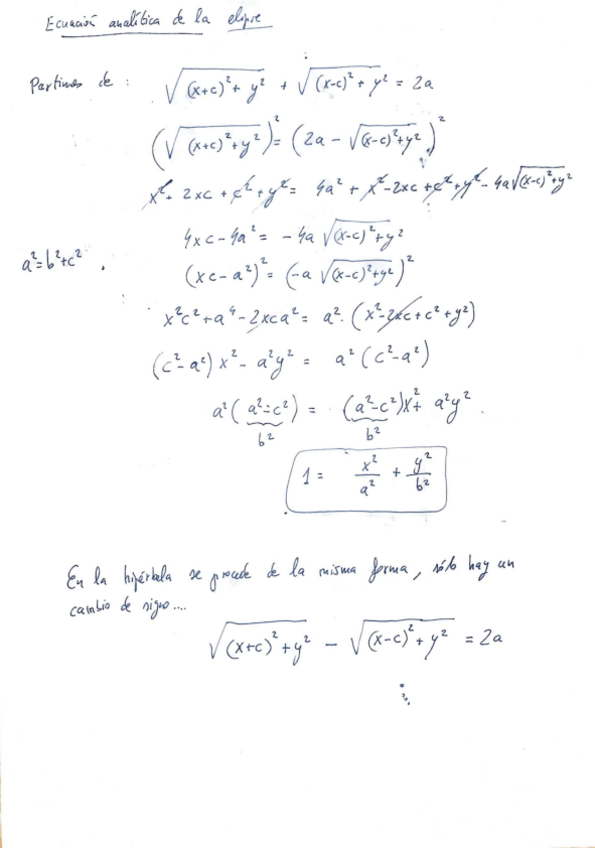 Ecuación analítica de la elipse
Partimos de : √((x+c)²+ y²) + √((x-c)²+ y²) = 2a
(√((x+c)²+y²))² = (2a - √((x-c)²+y²))²
x² + 2xc + c² + y² = 4a² + x² - 2xc + c² + y² - 4a√((x-c)²+y²)
4xc - 4a² = - 4a √((x-c)²+y²)
a²=b²+c²
(xc - a²)² = (-a √((x-c)²+y²))²
x²c² + a⁴ - 2xca² = a² · (x² - 2xc + c² + y²)
(c² - a²) x² - a²y² = a² (c² - a²)
a² (a² - c²) = (a² - c²)x² + a²y²
b² b²
1 = x²/a² + y²/b²
En la hipérbola se procede de la misma forma, sólo hay un
cambio de signo....
√((x+c)²+y²) - √((x-c)²+y²) = 2a
⋱